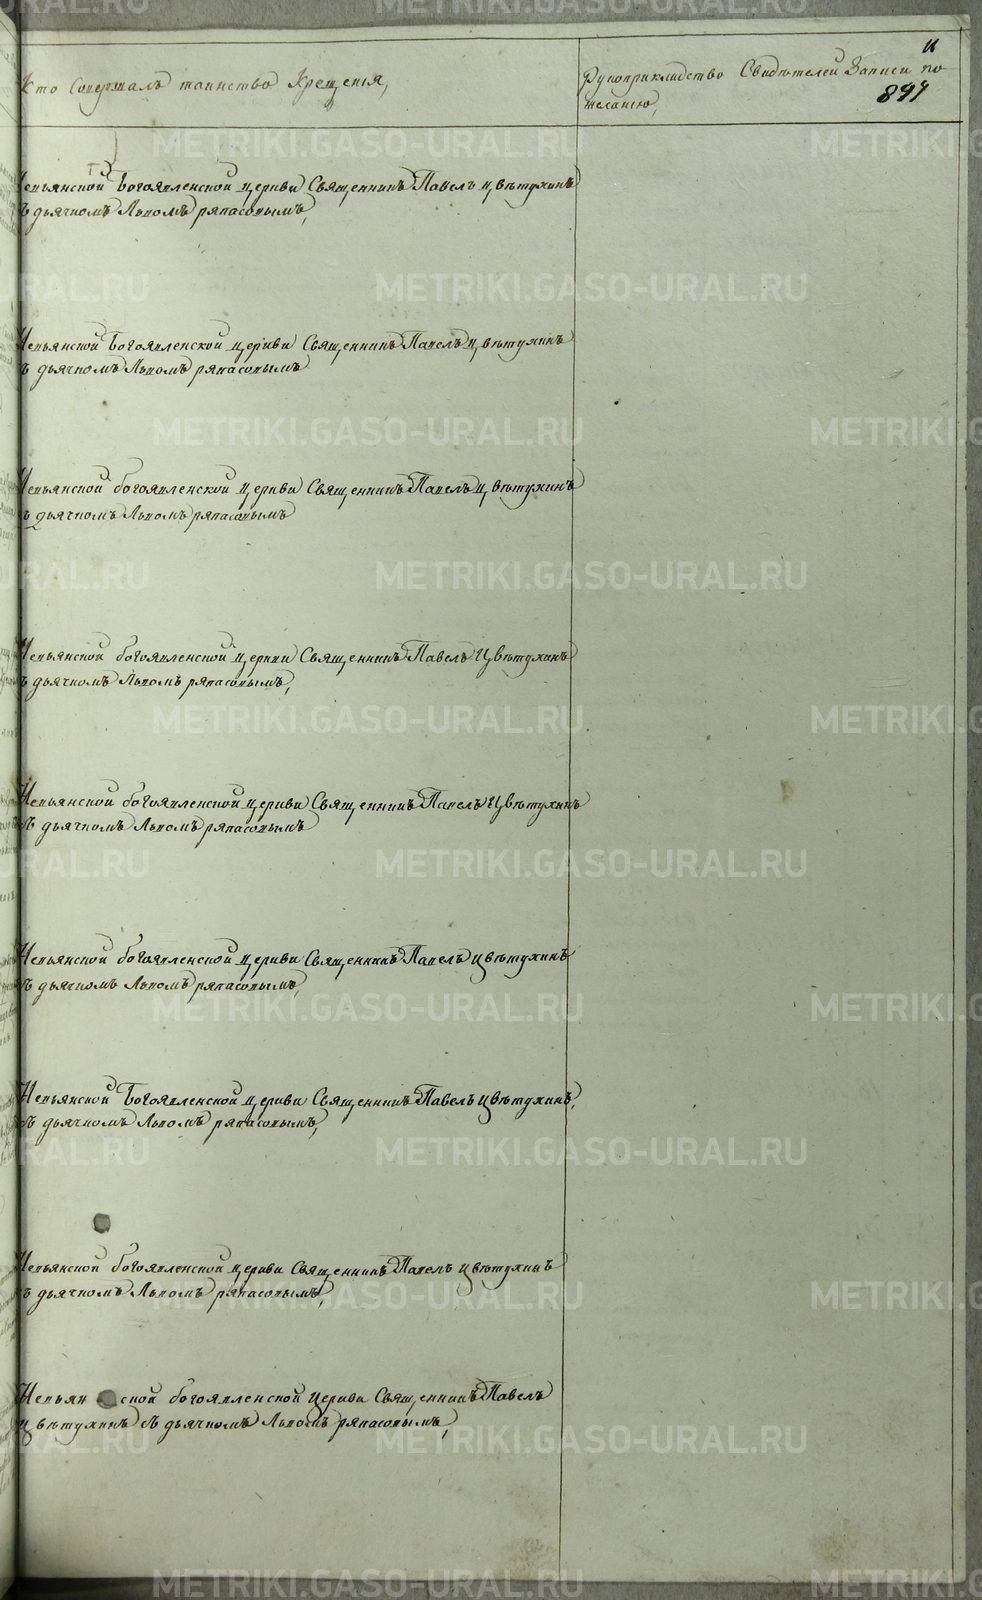 11
Кто Совершалъ таинство Крещенія,
Рукоприкладство Свидѣтелей Записи по
желанію,
897
Непьянской Богоявленской церкви Священникъ Павелъ Цвѣтухинъ
съ дьячкомъ Львомъ ряпасовымъ,
Непьянской Богоявленской церкви Священникъ Павелъ Цвѣтухинъ
съ дьячкомъ Львомъ ряпасовымъ
Непьянской богоявленской церкви Священникъ Павелъ Цвѣтухинъ
съ дьячкомъ Львомъ ряпасовымъ
Непьянской богоявленской церкви Священникъ Павелъ Цвѣтухинъ
съ дьячкомъ Львомъ ряпасовымъ,
Непьянской богоявленской церкви Священникъ Павелъ Цвѣтухинъ
съ дьячкомъ Львомъ ряпасовымъ
Непьянской богоявленской церкви Священникъ Павелъ цвѣтухинъ
съ дьячкомъ Львомъ ряпасовымъ,
Непьянской Богоявленской церкви Священникъ Павелъ цвѣтухинъ,
съ дьячкомъ Львомъ ряпасовымъ,
Непьянской богоявленской церкви Священникъ Павелъ цвѣтухинъ
съ дьячкомъ Львомъ ряпасовымъ,
Непьянской богоявленской Церкви Священникъ Павелъ
цвѣтухинъ съ дьячкомъ Львомъ ряпасовымъ,
METRIKI.GASO-URAL.RU